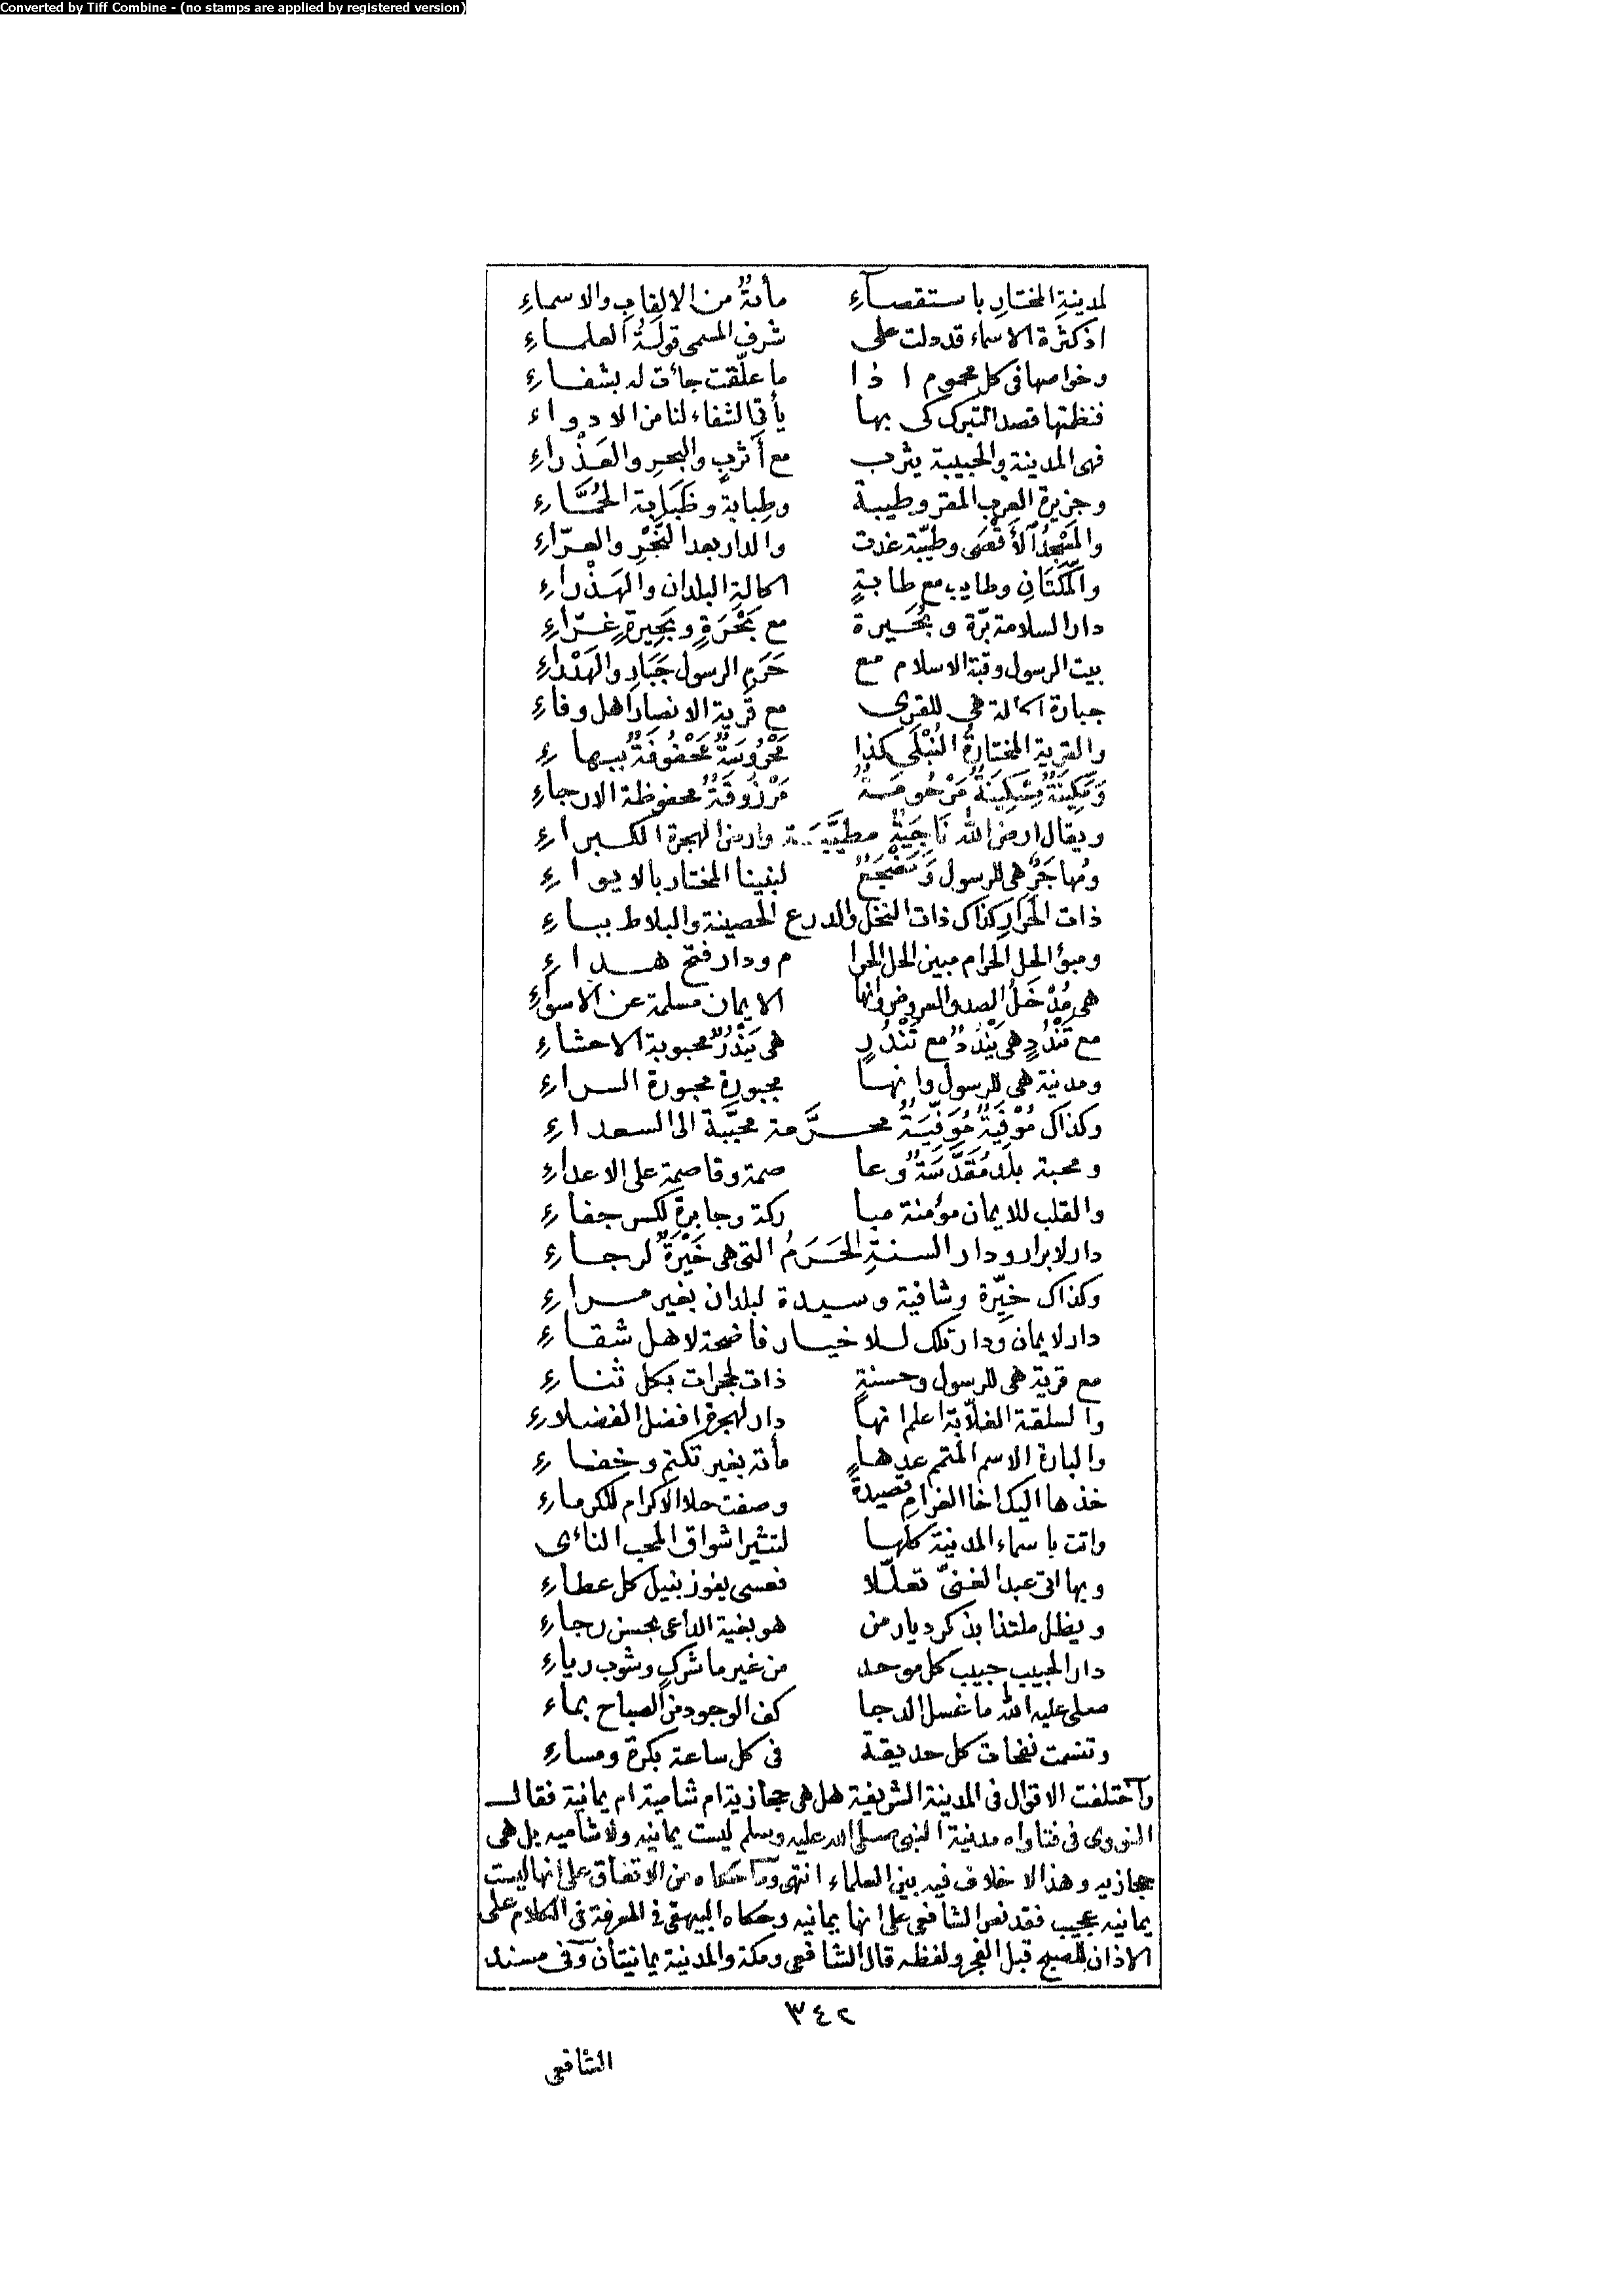 Converted by Tiff Combine - (no stamps are applied by registered version)
لمدينةِ المختارِ باستقصاءِ مأىةٌ من الالقابِ والاسماءِ
اذ كثرة الاسماء قد دلت على شرف المسمى قولةُ العلماءِ
وخواصها فى كل محموم اذا ما علّقت جأت له بشفاءِ
فنظمتها قصد التبرك كى بها يأتى الشفاء لنا من الادواء
فهى المدينة والحبيبة يثرب مع أثربٍ والبحرِ والعَذْراءِ
وجزيرة العرب المقر وطيبة وطِبابة وظَبَابة الحُمَّاءِ
والمَسْجِدُ الأَقْصَى وطيّبة غدت والدار بعد النَّحْرِ والعرّاءِ
والمَكَّتَانِ وطايب مع طابةٍ اكالة البلدان والهَذْراءِ
دار السلامة برّة وبُحَيرة مع بَحْرَةٍ وبَحِيرةٍ غرّاءِ
بيت الرسول وقبة الاسلام مع حَرَمِ الرسول جَبَارِ والهَذْراءِ
جبارة اكالة هى للقرى مع قرية الانصار اهل وفاءِ
والقرية المختارةُ المُثْلَى كذا مَحْرُوسَةٌ مَحْفُوفَةٌ ببهاءِ
وسَكِينَةٌ مِسْكِينَةٌ مَرْحُومَةٌ مَرْزُوقَةٌ محفوظة الارجاءِ
ويقال ارض الله نَاجِيَةٌ مطيَّبَة وارض الهجرة الكبراءِ
ومُهاجَرٌ هى للرسول وَمَضْجَعٌ لنبينا المختار بالايواءِ
ذات الحِرارِ كذاك ذات النخل والدرع الحصينة والبلاط بباءِ
ومبوّ الحل الحرام مبين الحل الحرا م ودار فتح هداءِ
هى مُدْخَلُ الصدق العروض وانها الايمان مسلمة عن الاسواءِ
مع تَنْدَدٍ هى يَنْدَدٌ مع تَنْدَرٍ هى يَنْدَرٌ محبوبة الاحشاءِ
ومدينة هى للرسول وانها مجبورة محبورة السراءِ
وكذاك مُوْفِيَةٌ مُوَفِّيَةٌ محرَّمة محبَّبة الى السعداءِ
ومحبة بلد مُقَدَّسَةٌ وعا صمة وقاصمة على الاعداءِ
والقلب للايمان مؤمنة مبا ركة وجابرة لكسر جفاءِ
دار لابرار ودار السنةِ الحَرَمُ التى هى خَيْرَةٌ لرجاءِ
وكذاك خيِّرة وشافية وسيدة لبلدان بغير مراءِ
دار لايمان ودار تلك للاخيار فاضحة لاهل شقاءِ
مع قرية هى للرسول وحسنةٍ ذات لحجرات بكل ثناءِ
والسلقة الغلّابة اعلم انها دار لهجرة افضل الفضلاءِ
والبارة الاسم المتمم عدها مأئة بغير تكتم وخفاءِ
خذها اليك اخا الغرام قصيدة وصفت حلا الاكرام للكرماءِ
واتت باسماء المدينة كلها لتثير اشواق المحب النائى
وبها اتى عبد الغنىّ تعلّلا فعسى يفوز بنيل كل عطاءِ
ويظل ملتذا بذكر ديار من هو بغية الداعى بحسن رجاءِ
دار الحبيب حبيب كل موحد من غير ما شركٍ وشوب رياءِ
صلى عليه الله ما غسل الدجا كف الوجود من الصباح بماء
وتنسمت نفحات كل حديقة فى كل ساعة بكرة ومساءِ
واختلفت الاقوال فى المدينة الشريفة هل هى حجازية ام شامية ام يمانية فقال
النووى فى فتاواه مدينة النبى صلى الله عليه وسلم ليست يمانيه ولا شاميه بل هى
حجازيه وهذا لا خلاف فيه بين العلماء انتهى وما حكاه من الاتفاق على انها ليست
يمانيه عجيب فقد نص الشافعى على انها يمانيه وحكاه البيهقى فى المعرفة فى الكلام على
الاذان للصبح قبل الفجر ولفظه قال الشافعى ومكة والمدينة يمانيتان وفى مسند
٣٤٢
الشافعى